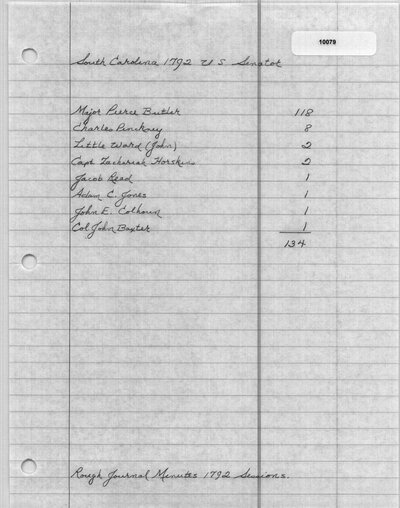 10079
South Carolina 1792 U S Senator
Major Pierce Butler 118
Charles Pinckney 8
Little Ward (John) 2
Capt Zachariah Horskins 2
Jacob Read 1
Adam C. Jones 1
John E. Colhoun 1
Col John Baxter 1
134
Rough Journal Minutes 1792 Sessions.